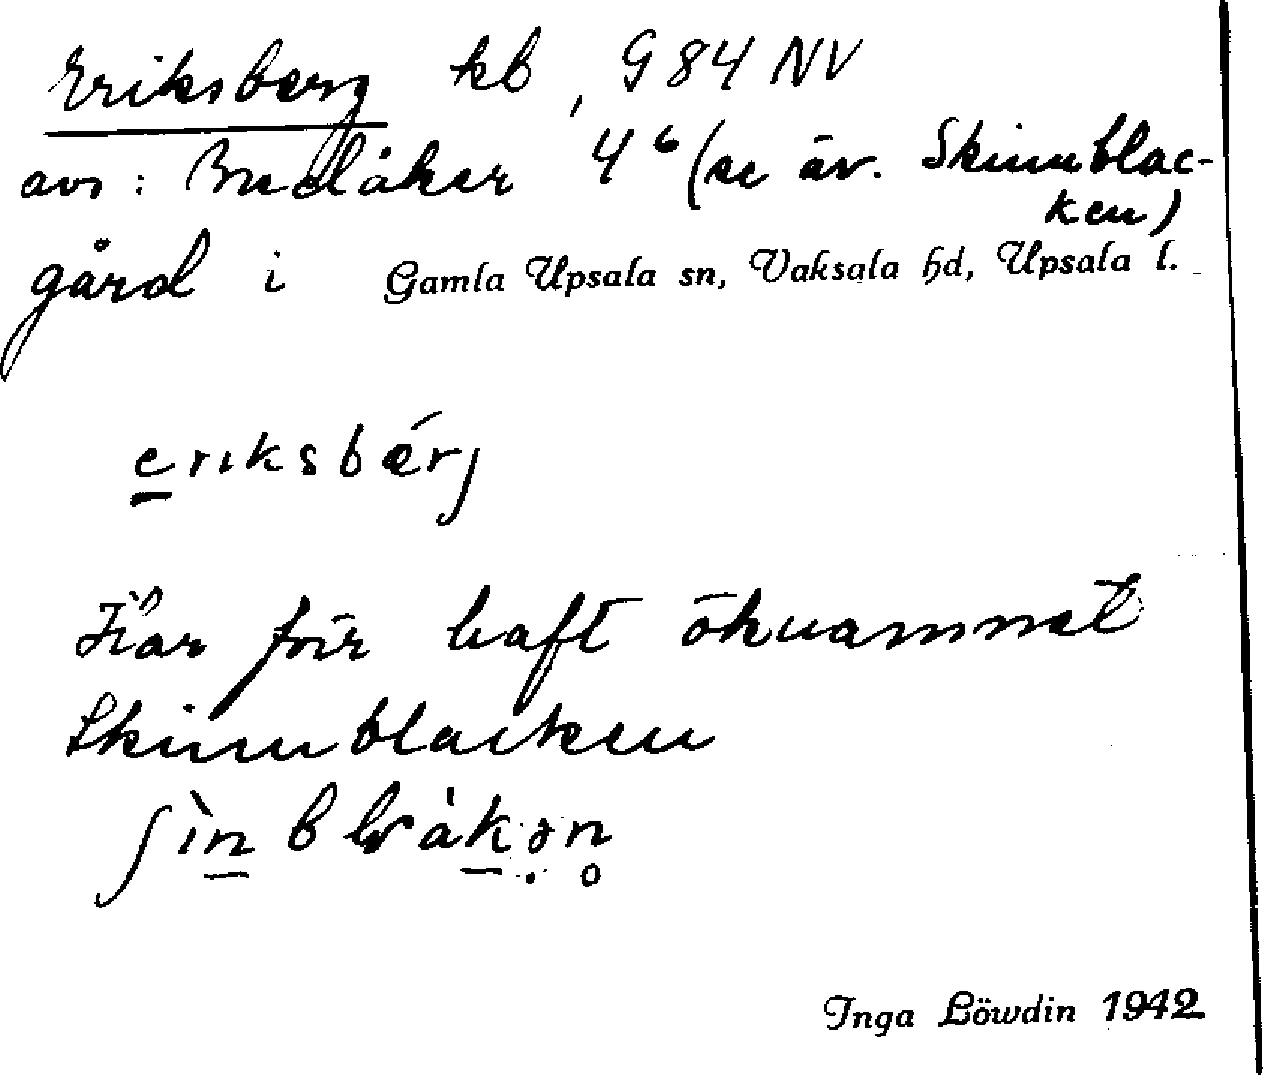 Eriksberg kb, G 84 NV
avs: Bredåker 4⁶ (se äv. Skinnblac-
ken)
gård i Gamla Upsala sn, Vaksala hd, Upsala l.
eriksbérj
Har förr haft öknamnet
Skinnblacken
Inga Löwdin 1942